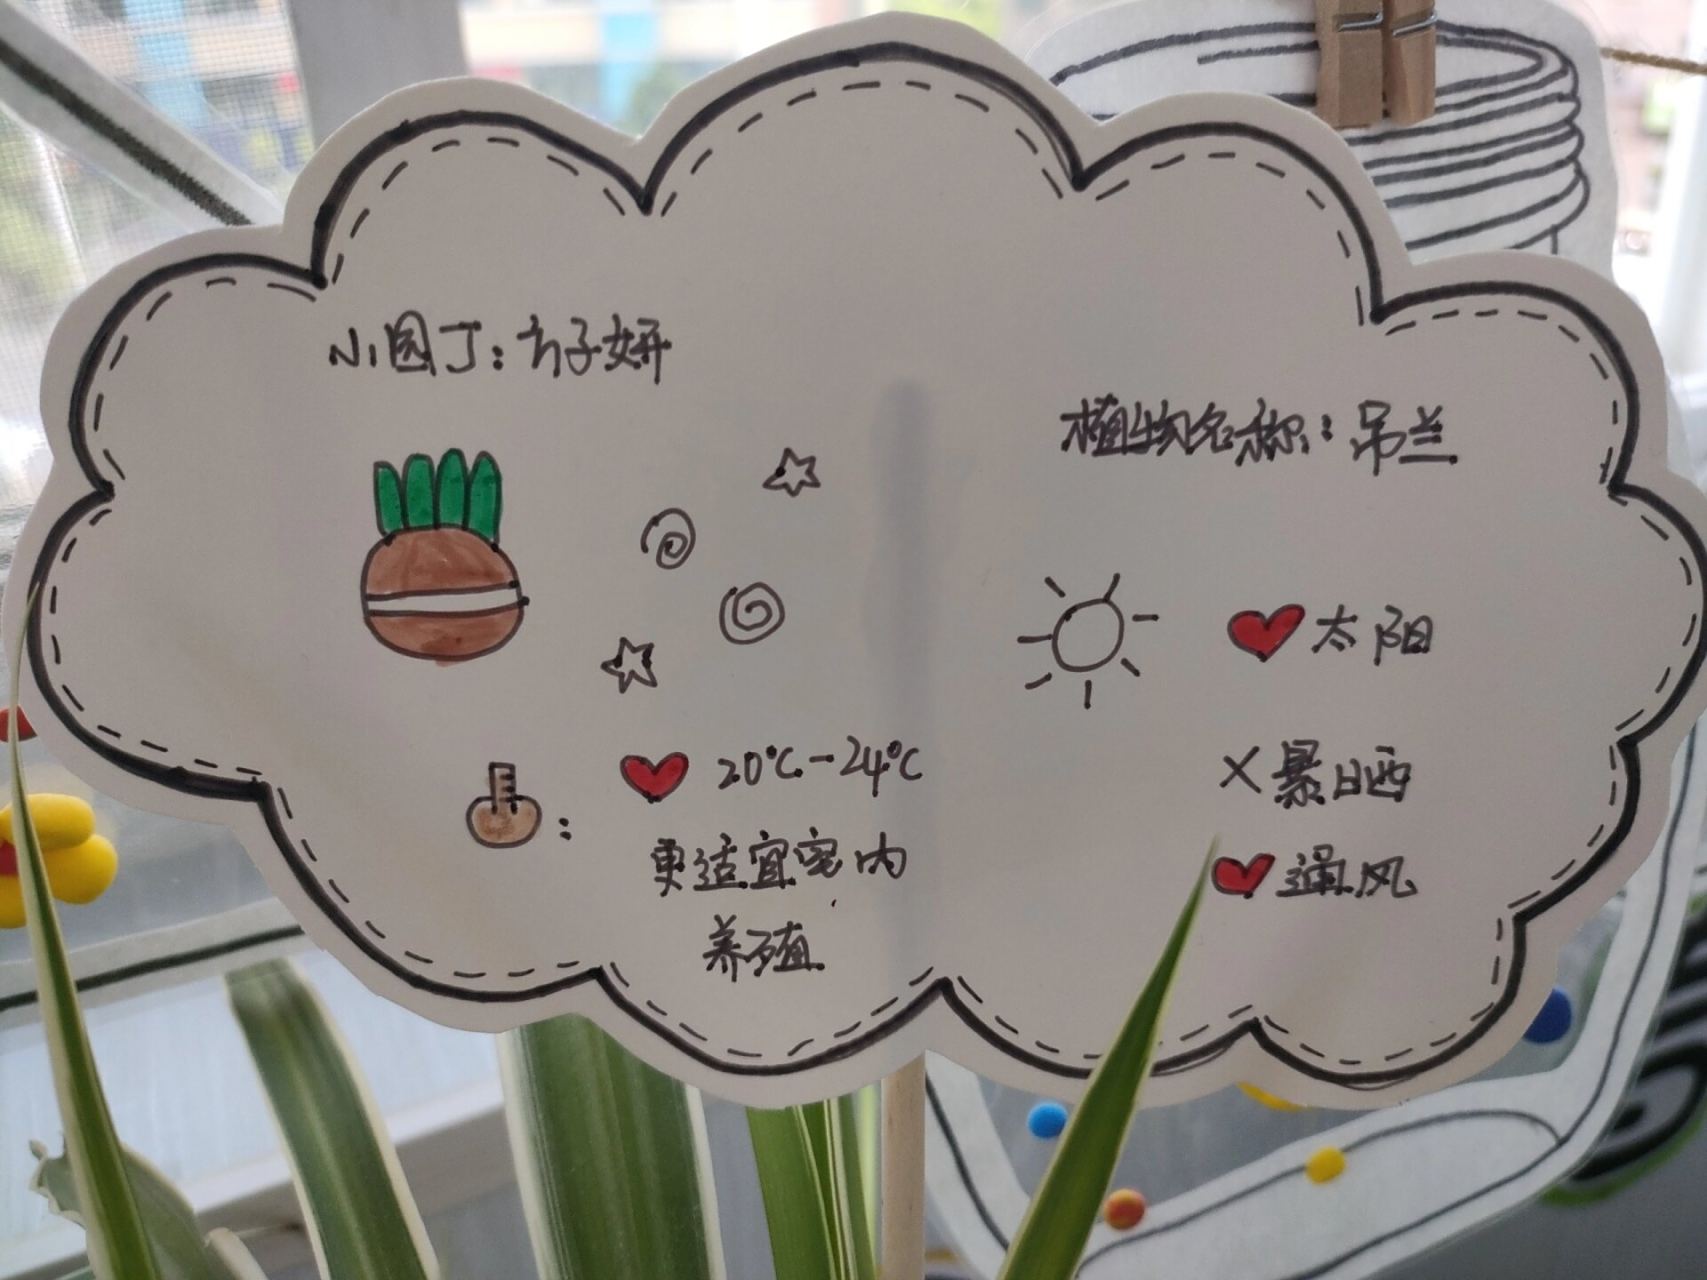 小园丁：方子妍
植物名称：吊兰
太阳
20℃-24℃
×暴晒
更适宜室内
通风
养殖